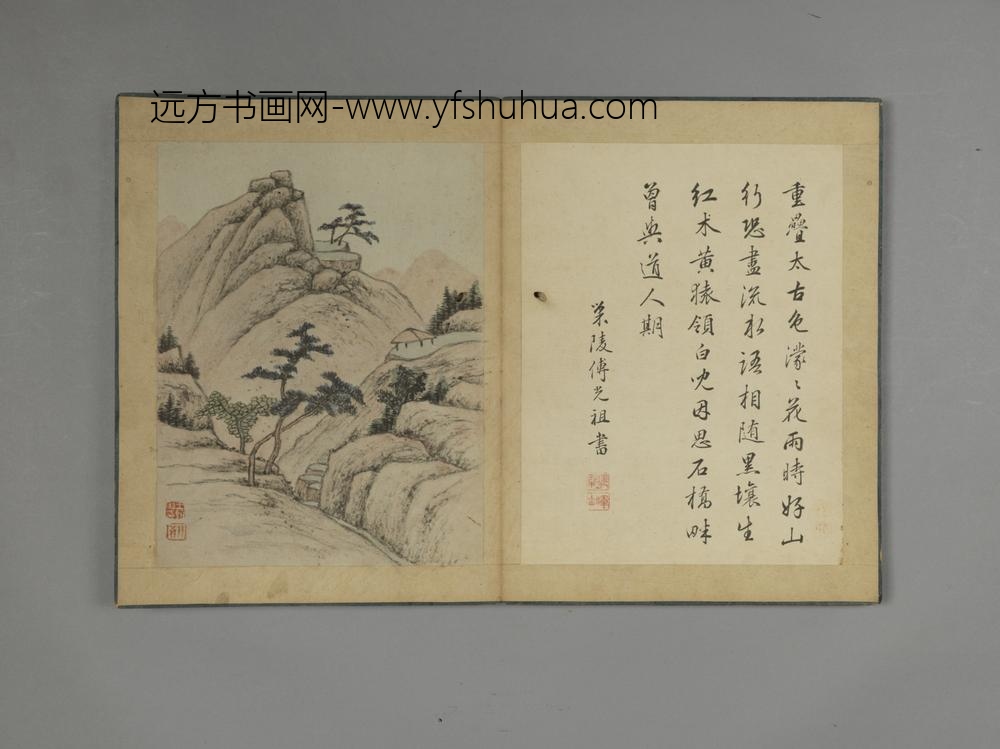 远方书画网-www.yfshuhua.com
重疊太古色濛〻花雨時好山
行恐盡流水語相随黑壤生
紅朮黄猿領白兒因思石橋畔
曾與道人期
陵傅光祖書